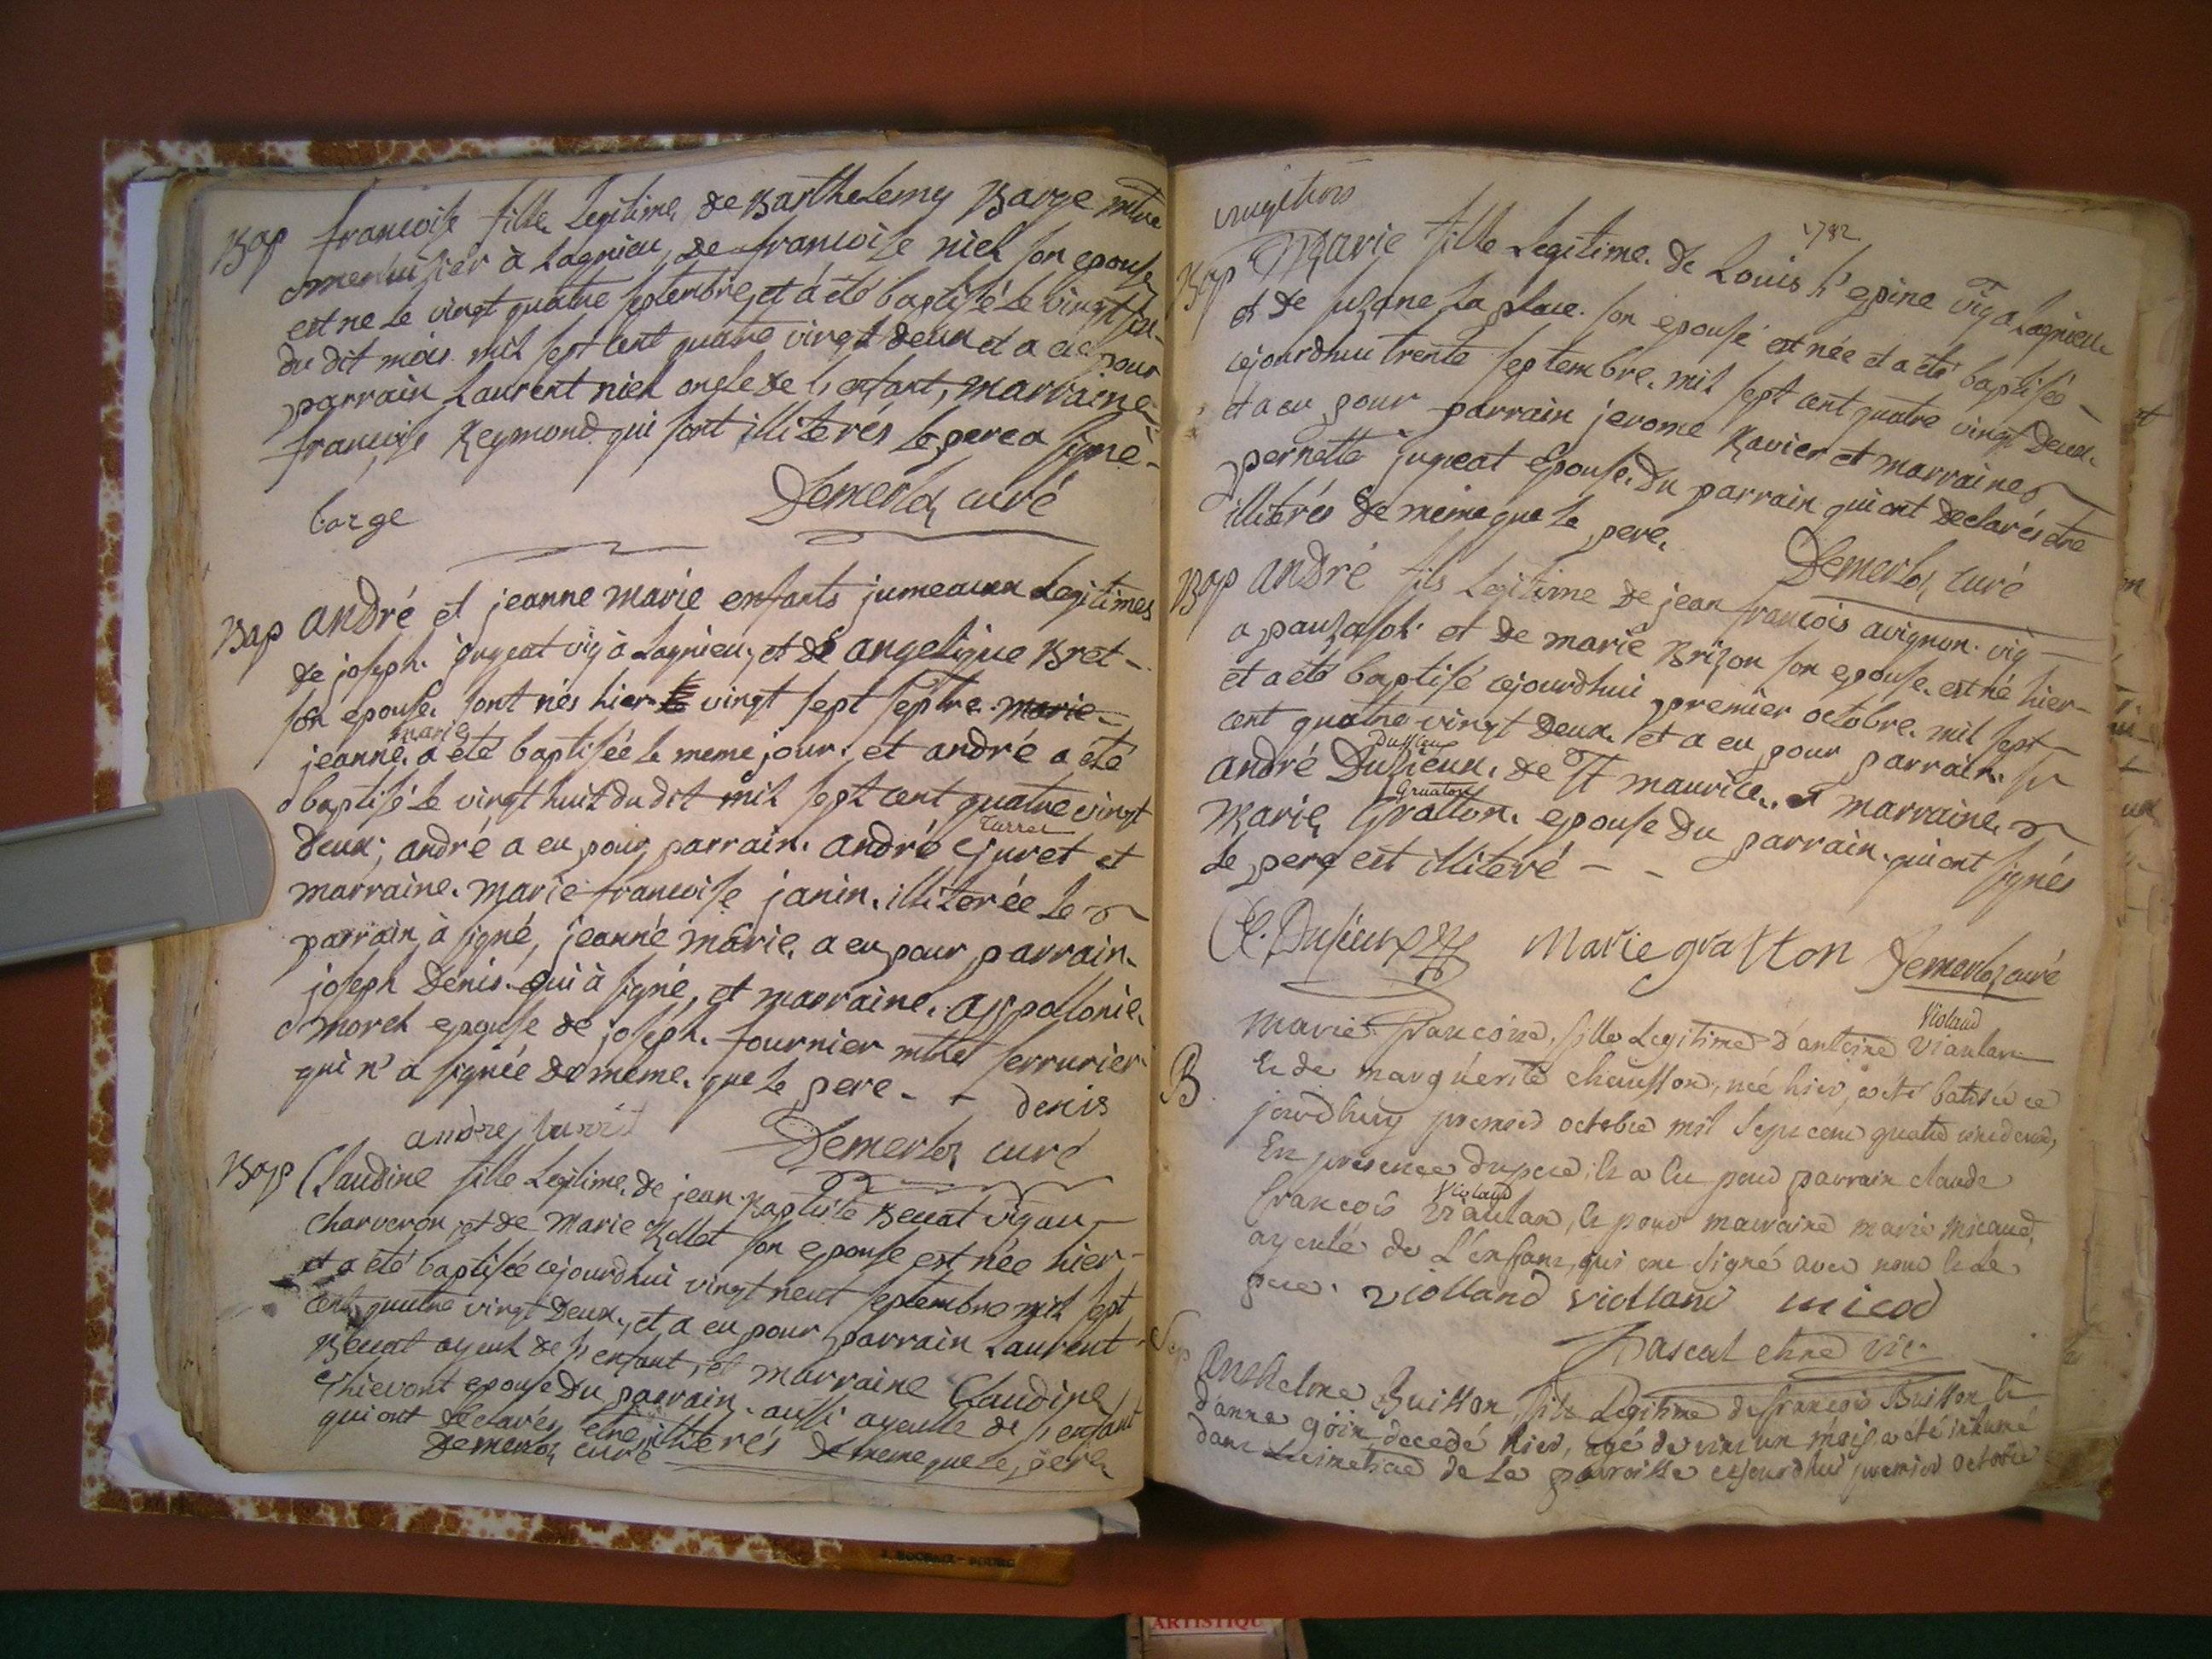 Bap françoise fille Legitime de Barthelemy Barge mtre
menuisier à Lagnieu, de françoise niel son epouse
est ne le vingt quatre septembre, et à été baptisé le vingt six
du dit mois mil sept cent quatre vingt deux et a eu pour
parrain Laurent niel oncle de l'enfant, marraine
françoise Reymond qui sont illiterés le pere a signé
barge Demerloz curé
Bap André et jeanne marie enfants jumeaux Legitimes
de joseph jugeat vig à Lagnieu, et de angelique Bret
son epouse sont nés hier le vingt sept septre marie
marie
jeanne a été baptisée le meme jour, et andré a été
baptisé le vingt huit du dit mil sept cent quatre vingt
turret
deux; andré a eu pour parrain andré juret et
marraine marie françoise janin illiterée le
parrain à signé, jeanne marie a eu pour parrain
joseph Denis qui à signé, et marraine appollonie
morel epouse de joseph fournier mtre serrurier
qui n'a signée de meme que le pere denis
andre turrit Demerloz curé
Bap Claudine fille Legitime de jean Baptiste Benat vig au
charveron, et de Marie Rollet son epouse est née hier
et a été baptisée cejourdhui vingt neuf septembre mil sept
cent quatre vingt deux, et a eu pour parrain Laurent
Benat ayeul de l'enfant, et marraine Claudine
Thievont epouse du parrain aussi ayeulle de l'enfant
qui ont declarés etre illiterés de meme que le pere
Demerloz curé
vingt trois
1782
Bap Marie fille Legitime de Louis L'epine vig a Lagnieu
et de suzane La place son epouse est née et a été baptisée
cejourdhui trente septembre mil sept cent quatre vingt deux
et a eu pour parrain jerome Ravier et marraine
pernette jugeat Epouse du parrain qui ont declarés etre
illiterés de meme que le pere
Demerloz curé
Bap André fils Legitime de jean françois avignon vig
a pauzafol et de marie Brizon son epouse est né hier
et a été baptisé cejourdhui premier octobre mil sept
cent quatre vingt deux et a eu pour parrain sr
Dussieu
André Dusieux de St maurice et marraine
Gruaton
Marie Gratton epouse du parrain qui ont signés
le pere est illiteré
Dusieux Marie gratton Demerloz curé
Violand
marie françoise, fille Legitime d'antoine Viaulan
B Et de marguerite chausson, née hier, a été batisée ce
jourdhuy premier octobre mil Sept cens quatre vint deux,
En presence du pere; Et a Eu pour parrain claude
Violand
francois Viaulan, Et pour marraine marie micaud,
ayeule de L'enfant, qui ont Signé avec nous Et le
pere. violland violland micod
Pascal vic.
Sep Anthelme Buisson, fils Legitime de françois Buisson Et
d'anne goin, decedé hier, agé de vint un mois, a été inhumé
dans Le cimetiere de la parroisse cejourdhui premier octobre